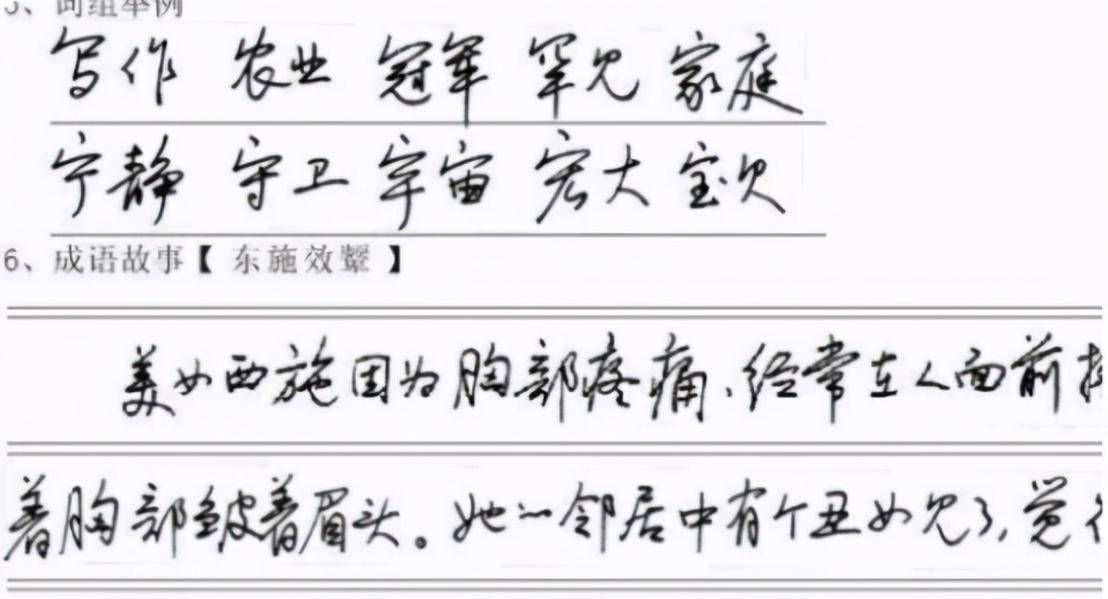 5、词组举例
写作 农业 冠军 罕见 家庭
宁静 守卫 宇宙 宏大 宝贝
6、成语故事【 东施效颦 】
美女西施因为胸部疼痛，经常在人面前
着胸部皱着眉头。她的邻居中有个丑女见了，觉